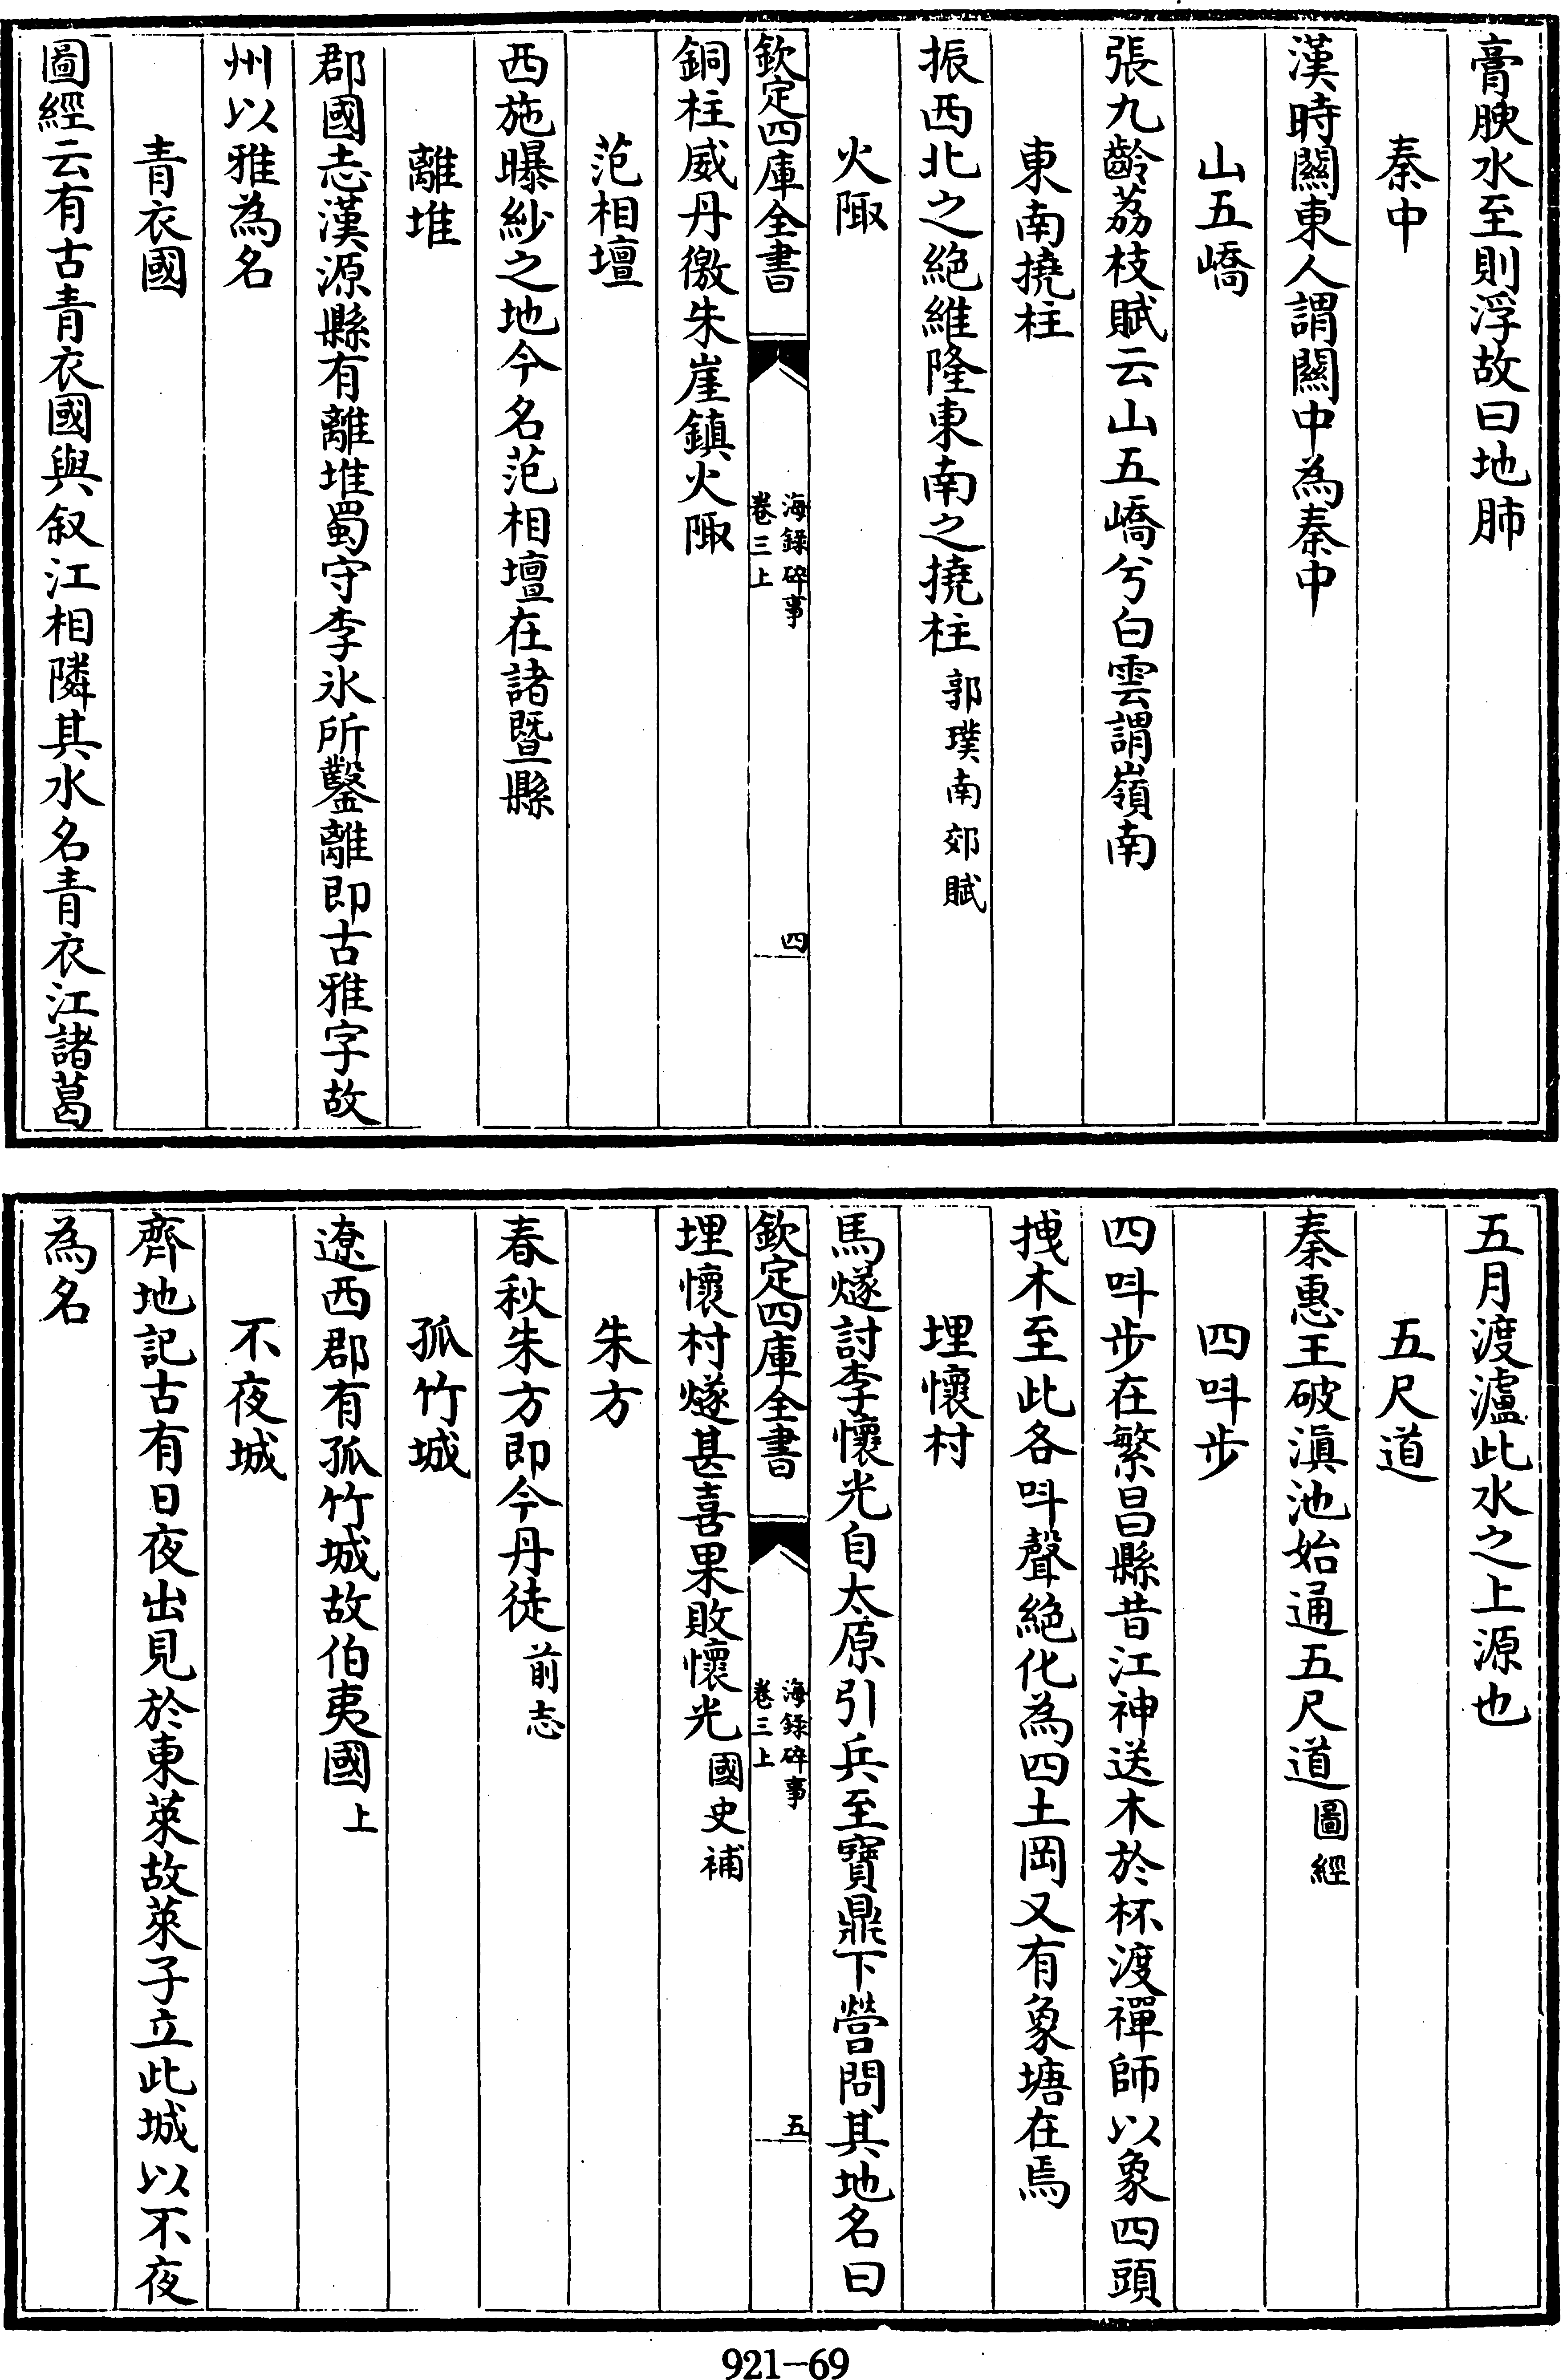 膏腴水至則浮故曰地肺
秦中
漢時關東人謂關中為秦中
山五嶠
張九齡荔枝賦云山五嶠兮白雲謂嶺南
東南撓柱
振西北之絕維隆東南之撓柱郭璞南郊賦
火陬
欽定四庫全書
海錄碎事
卷三上
四
銅柱威丹徼朱崖鎮火陬
范相壇
西施曝紗之地今名范相壇在諸暨縣
離堆
郡國志漢源縣有離堆蜀守李氷所鑿離即古雅字故
州以雅為名
青衣國
圖經云有古青衣國與叙江相隣其水名青衣江諸葛
五月渡瀘此水之上源也
五尺道
秦惠王破滇池始通五尺道圖經
四呌步
四呌步在繁昌縣昔江神送木於杯渡禪師以象四頭
拽木至此各呌聲絕化為四土岡又有象塘在焉
埋懷村
馬燧討李懷光自太原引兵至寶鼎下營問其地名曰
欽定四庫全書
海錄碎事
卷三上
五
埋懷村燧甚喜果敗懷光國史補
朱方
春秋朱方即今丹徒前志
孤竹城
遼西郡有孤竹城故伯夷國上
不夜城
齊地記古有日夜出見於東萊故萊子立此城以不夜
為名
921-69